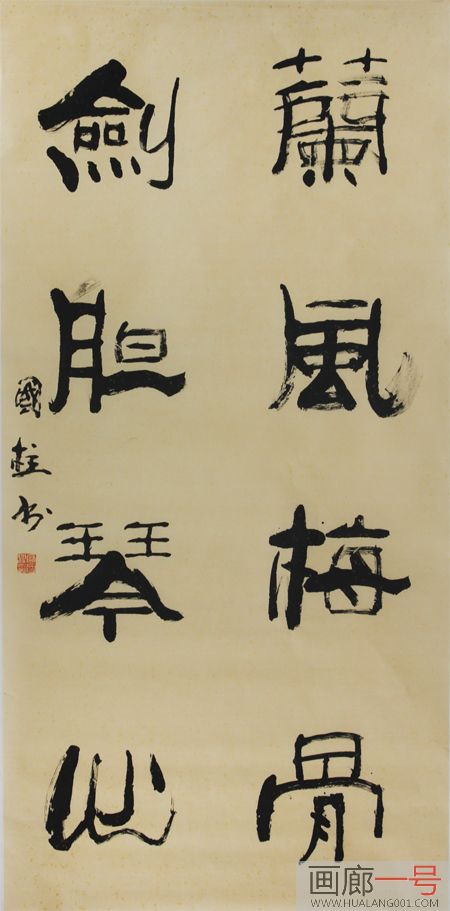 蘭風梅骨
劍胆琴心
國柱书
画廊一号
WWW.HUALANG001.COM